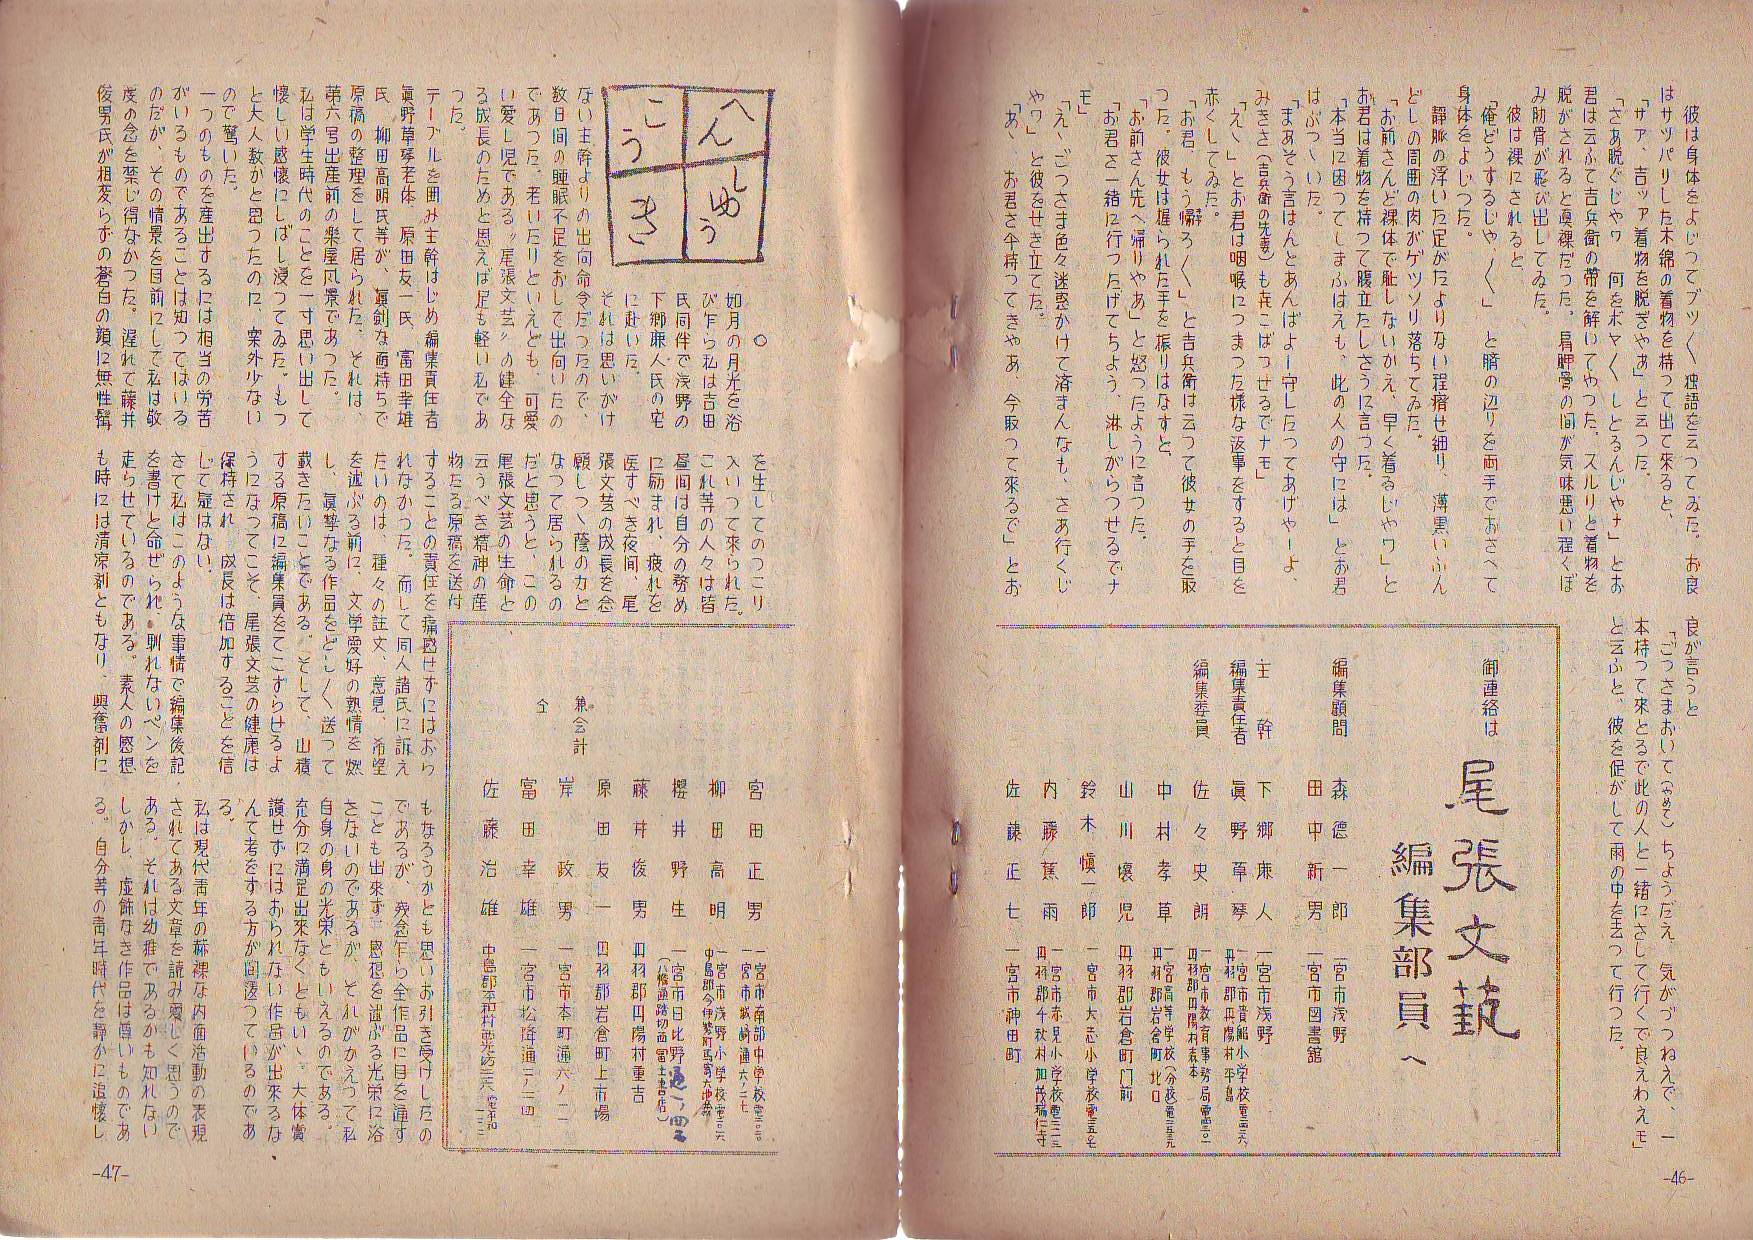 彼は身体をよじつてブツ〱独語を云つてゐた。お良
はサツパリした木綿の着物を持つて出て来ると、
「サァ、吉ッァ着物を脱ぎやあ」と云つた。
「さあ脱ぐじやワ　何をボヤ〱しとるんじやナ」とお
君は云ふて吉兵衛の帯を解いてやつた。スルリと着物を
脱がされると眞裸だつた。肩胛骨の間が気味悪い程くぼ
み肋骨が飛び出してゐた。
彼は裸にされると、
「俺どうするじや〱」と臍の辺りを両手でおさへて
身体をよじつた。
静脈の浮いた足がたよりない程瘠せ細り、薄黒いふん
どしの周囲の肉がゲツソリ落ちてゐた。
「お前さんど裸体で耻しないかえ、早く着るじやワ」と
お君は着物を持つて腹立たしさうに言つた。
「本当に困つてしまふはえも、此の人の守には」とお君
はぶつ〱いた。
「まあそう言はんとあんばよー守したつてあげやーよ、
みきさ（吉兵衛の先妻）も草こばつせるでナモ」
「えゝ」とお君は咽喉につまつた様な返事をすると目を
赤くしてゐた。
「お君、もう帰ろ〱」と吉兵衛は云つて彼女の手を取
つた。彼女は握られた手を振りはなすと、
「お前さん先へ帰りやあ」と怒つたように言つた。
「お君さ一緒に行つたげてちよう、淋しがらつせるでナ
モ」
「えゝごつさま色々迷惑かけて済まんなも、さあ行くじ
やワ」と彼をせき立てた。
「あゝ　お君さ傘持つてきやあ、今取つて来るで」とお
良が言うと
「ごつさまおいて（やめて）ちようだえ、気がづつねえで、一
本持つて来とるで此の人と一緒にさして行くで良えわえモ」
と云ふと、彼を促がして雨の中を去つて行つた。
御連絡は
尾張文藝
編集部員へ
編集顧問　森徳一郎　一宮市浅野
田中新男　一宮市図書館
主幹　下郷廉人　一宮市浅野
編集責任者　眞野草琴　一宮市貴船小学校
丹羽郡丹陽村平島
編集委員　佐々史朗　一宮市教育事務局
丹羽郡丹陽村森本
中村孝草　一宮高等学校（分校）
丹羽郡岩倉町北口
山川懐児　丹羽郡岩倉町門前
鈴木愼一郎　一宮市大志小学校
内藤蕉雨　一宮市赤見小学校
丹羽郡千秋村加茂瑞仁寺
佐藤正七　一宮市神田町
-46-
へんしゅうこうき
○
如月の月光を浴
び乍ら私は吉田
氏同伴で浅野の
下郷廉人氏の宅
に赴いた。
それは思いがけ
ない主幹よりの出向命令だつたので、
数日間の睡眠不足をおして出向いたの
であつた。老いたりといえども、可愛
い愛し児である〝尾張文芸〟の健全な
る成長のためと思えば足も軽い私であ
つた。
テーブルを囲み主幹はじめ編集責任者
眞野草琴老体、原田友一氏、富田幸雄
氏、柳田高明氏等が、眞剣な面持ちで
原稿の整理をして居られた、それは、
第六号出産前の楽屋風景であつた。
私は学生時代のことを一寸思い出して
懐しい感懐にしばし浸つてゐた。もつ
と大人数かと思つたのに、案外少ない
ので驚いた。
一つのものを産出するには相当の労苦
がいるものであることは知つてはいる
のだが、その情景を目前にして私は敬
虔の念を禁じ得なかつた。遅れて藤井
俊男氏が相変らずの蒼白の顔に無性髯
を生してのつこり
入いつて来られた。
これ等の人々は皆
昼間は自分の務め
に励まれ、疲れを
医すべき夜間、尾
張文芸の成長を念
願しつゝ蔭の力と
なつて居られるの
だと思うと、この
尾張文芸の生命と
云うべき精神の産
物たる原稿を送付
することの責任を痛感せずにはおら
れなかつた。而して同人諸氏に訴え
たいのは、種々の註文、意見、希望
を述ぶる前に、文学愛好の熱情を燃
し、眞摯なる作品をどし〱送つて
戴きたいことである。そして、山積
する原稿に編集員をてこずらせるよ
うになつてこそ、尾張文芸の健康は
保持され、成長は倍加することを信
じて疑はない。
さて私はこのような事情で編集後記
を書けと命ぜられ、馴れないペンを
走らせているのである。素人の感想
も時には清凉剤ともなり、興奮剤に
もなろうかとも思いお引き受けしたの
であるが、残念乍ら全作品に目を通す
ことも出来ず、感想を述ぶる光栄に浴
さないのであるが、それがかえつて私
自身の身の光栄ともいえるのである。
充分に満足出来なくともいゝ、大体賞
讃せずにはおられない作品が出来るな
んて考をする方が間違つているのであ
る。
私は現代青年の赤裸な内面活動の表現
されてある文章を読み愛しく思うので
ある。それは幼稚であるかも知れない
しかし、虚飾なき作品は尊いものであ
る。自分等の青年時代を静かに追懐し
宮田正男　一宮市南部中学校
一宮市城崎通六ノ二七
柳田高明　一宮市浅野小学校
中島郡今伊勢町馬寄
櫻井野生　一宮市日比野
藤井俊男　丹羽郡丹陽村重吉
原田友一　丹羽郡岩倉町上市場
兼会計　岸政男　一宮市本町通六ノ一一
仝　富田幸雄　一宮市松降通二ノ三四
佐藤治雄
-47-